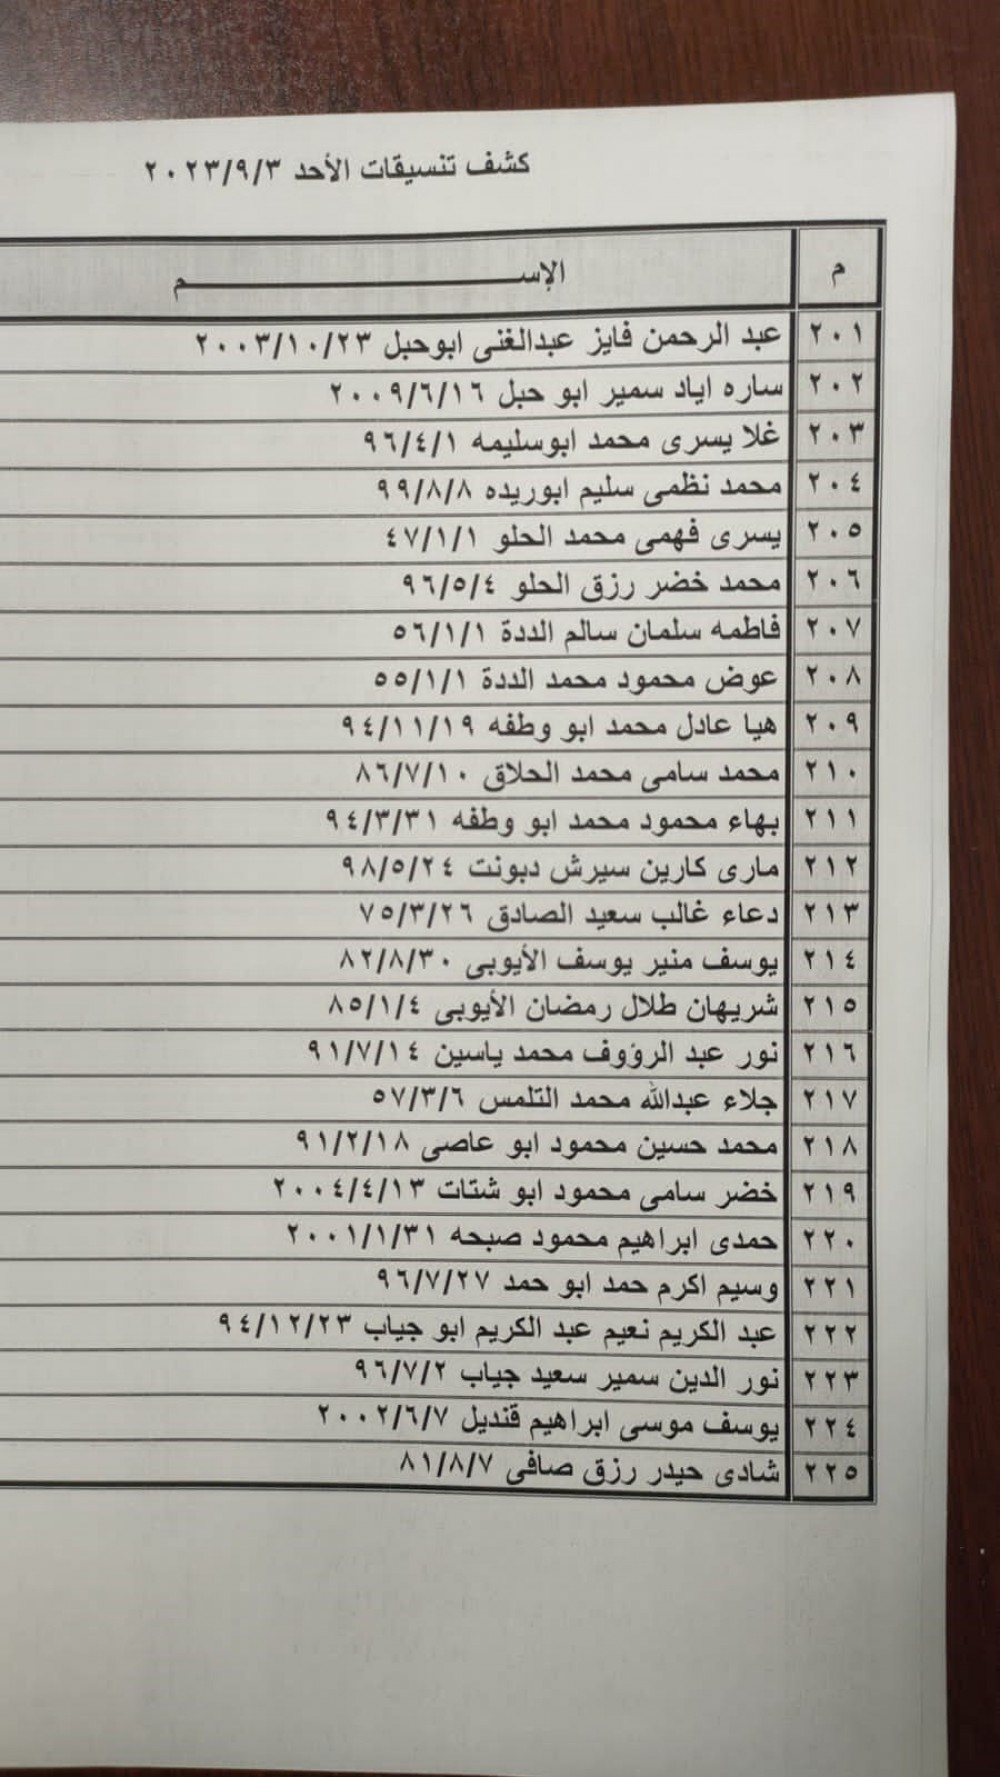 كشف تنسيقات الأحد ٢٠٢٣/٩/٣
م الإســـــــــــــم
٢٠١ عبد الرحمن فايز عبدالغنى ابوحبل ٢٠٠٣/١٠/٢٣
٢٠٢ ساره اياد سمير ابو حبل ٢٠٠٩/٦/١٦
٢٠٣ غلا يسرى محمد ابوسليمه ٩٦/٤/١
٢٠٤ محمد نظمى سليم ابوريده ٩٩/٨/٨
٢٠٥ يسرى فهمى محمد الحلو ٤٧/١/١
٢٠٦ محمد خضر رزق الحلو ٩٦/٥/٤
٢٠٧ فاطمه سلمان سالم الددة ٥٦/١/١
٢٠٨ عوض محمود محمد الددة ٥٥/١/١
٢٠٩ هيا عادل محمد ابو وطفه ٩٤/١١/١٩
٢١٠ محمد سامى محمد الحلاق ٨٦/٧/١٠
٢١١ بهاء محمود محمد ابو وطفه ٩٤/٣/٣١
٢١٢ مارى كارين سيرش دبونت ٩٨/٥/٢٤
٢١٣ دعاء غالب سعيد الصادق ٧٥/٣/٢٦
٢١٤ يوسف منير يوسف الأيوبى ٨٢/٨/٣٠
٢١٥ شريهان طلال رمضان الأيوبى ٨٥/١/٤
٢١٦ نور عبد الرؤوف محمد ياسين ٩١/٧/١٤
٢١٧ جلاء عبدالله محمد التلمس ٥٧/٣/٦
٢١٨ محمد حسين محمود ابو عاصى ٩١/٢/١٨
٢١٩ خضر سامى محمود ابو شتات ٢٠٠٤/٤/١٣
٢٢٠ حمدى ابراهيم محمود صبحه ٢٠٠١/١/٣١
٢٢١ وسيم اكرم حمد ابو حمد ٩٦/٧/٢٧
٢٢٢ عبد الكريم نعيم عبد الكريم ابو جياب ٩٤/١٢/٢٣
٢٢٣ نور الدين سمير سعيد جياب ٩٦/٧/٢
٢٢٤ يوسف موسى ابراهيم قنديل ٢٠٠٢/٦/٧
٢٢٥ شادى حيدر رزق صافى ٨١/٨/٧